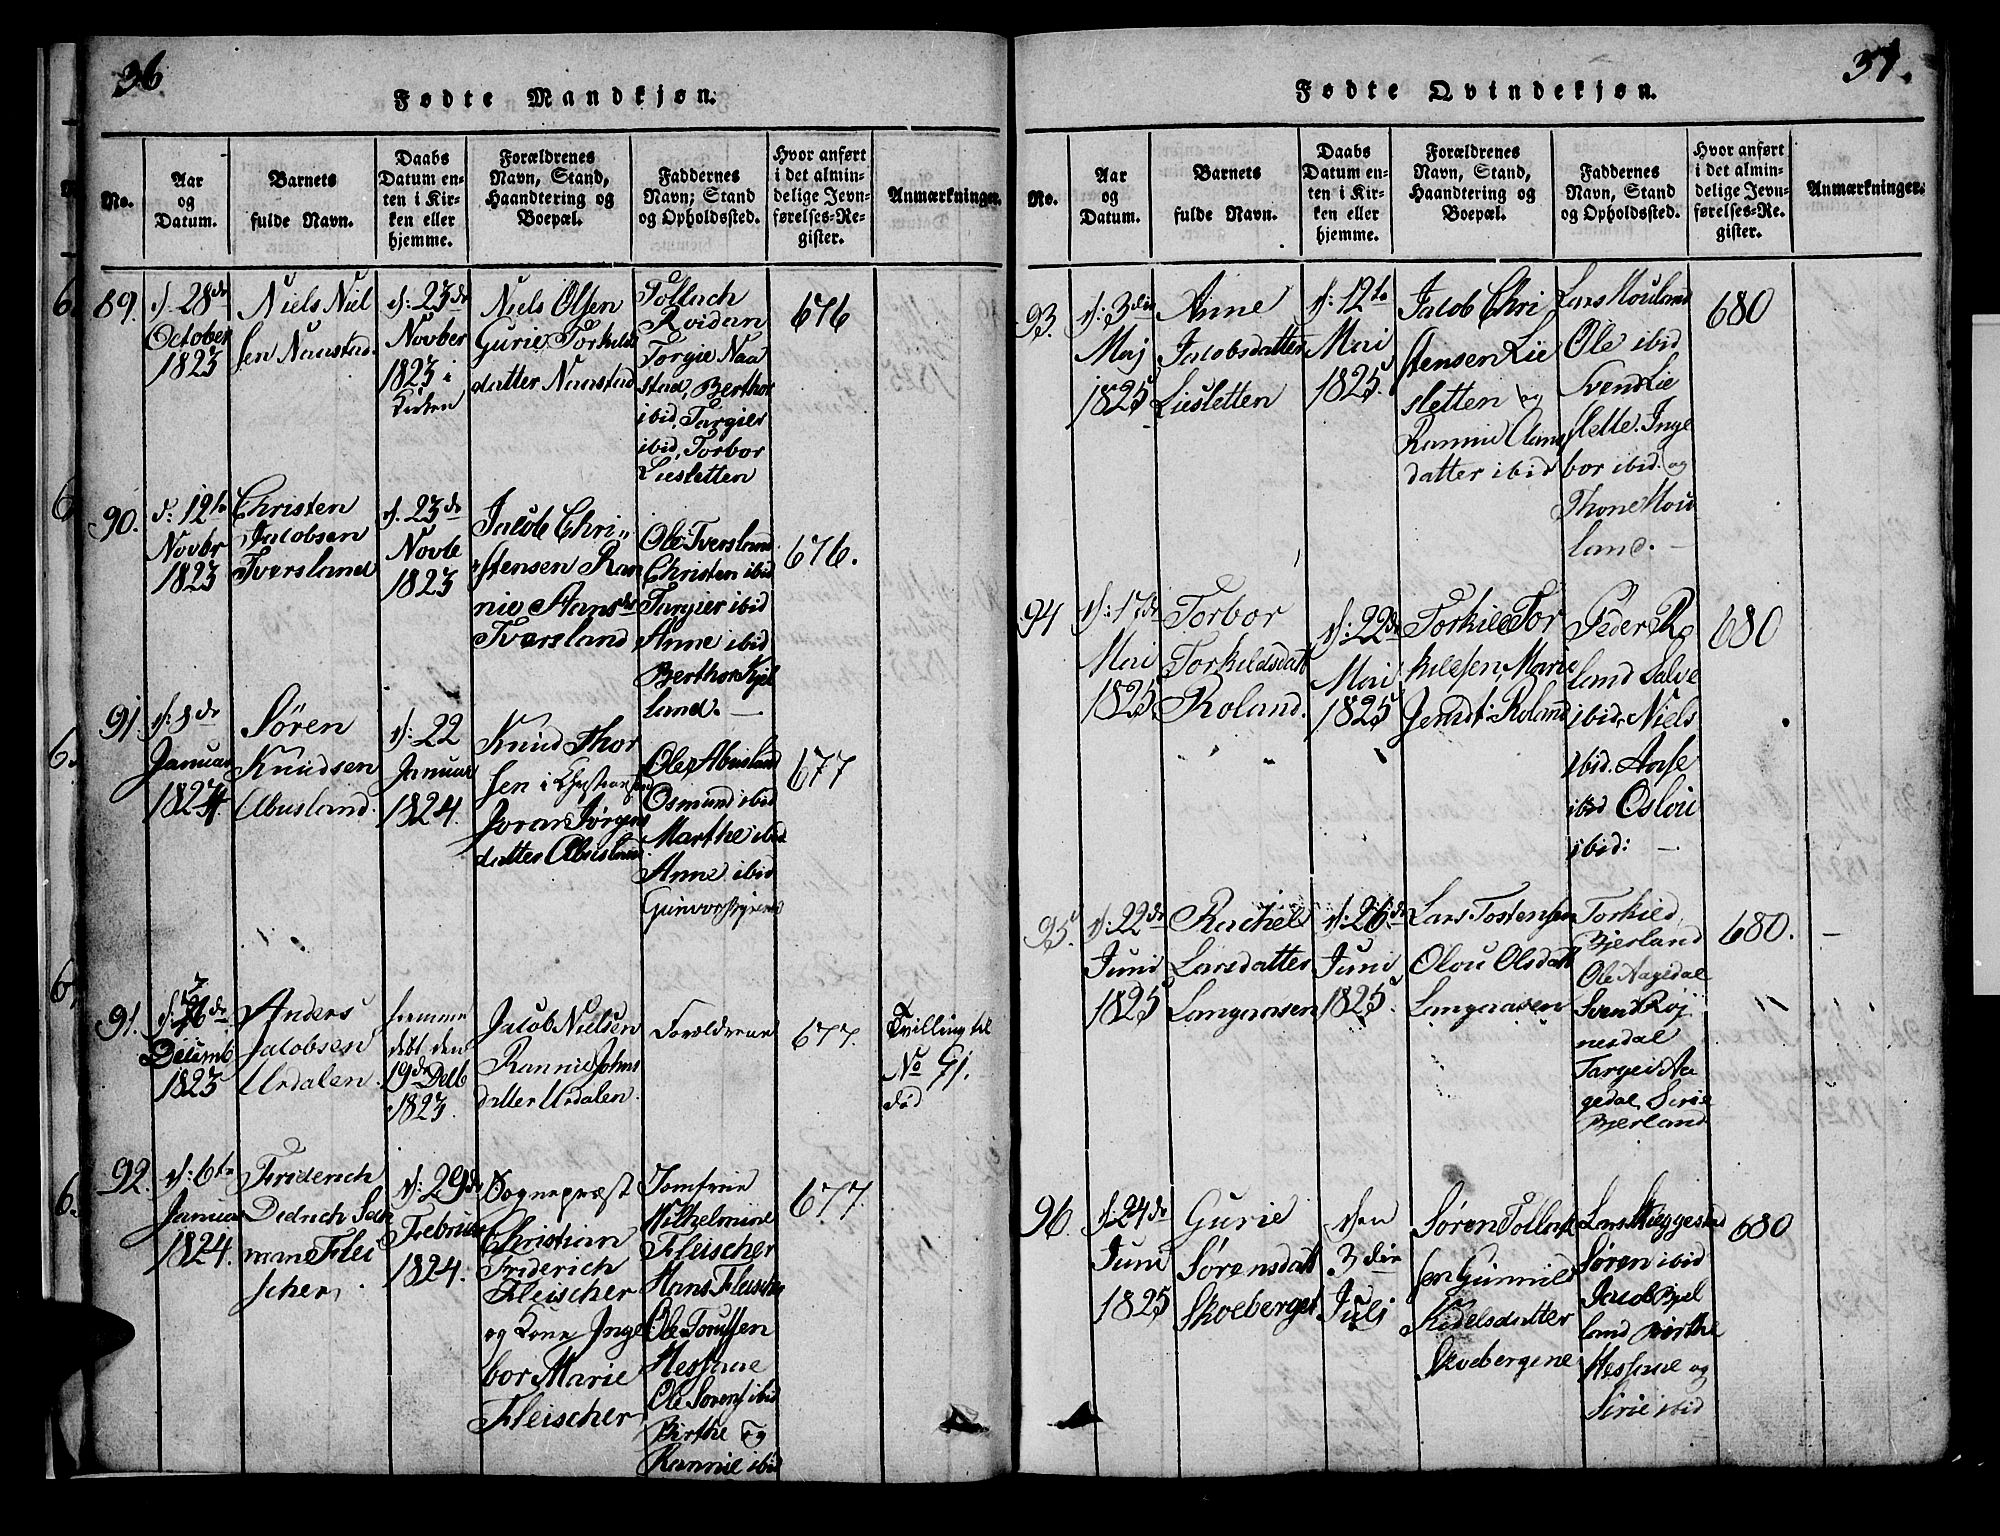 36
Fødte Mandkjøn.
No.
Aar
og
Datum.
Barnets
fulde Navn.
Daabs
Datum en-
ten i Kir-
ken eller
hjemme.
Forældrenes
Navn, Stand,
Haandtering og
Boepæl.
Faddernes
Navn; Stand
og Opholdssted.
Hvor anført
i det almin-
delige Jevn-
førelses-Re-
gister.
Anmærkninger.
89.
d: 28de
October
1823
Niels Niel
sen Naastad
d: 23de
Novber
1823 i
Kirken
Niels Olsen
Gurie Torkilds
datter Naastad
Tollach
Roidan
Torgie Naa
stad, Berthor
ibid, Targier
ibid, Torbor
Liesletten
676
90.
d: 12te
Novbr
1823
Christen
Jacobsen
Tversland
d. 23de
Novb
1823
Jacob Chri
stensen Ran
nie Aansdr
Tversland
Ole Tversland
Christen ibid
Targier ibid
Anne ibid
Berthor Kjel
land. —
676.
91
d: 8de
Januar
1824
Søren
Knudsen
Abusland.
d: 22
Januar
1824.
Knud Thor
sen i Christiansand
Joran Jørgens
datter Abusland
Ole Abusland
Osmund ibid
Marthe ibid
Anne ibid
Gunvor
677
91.
d: 26de
Decemb
1823
Anders
Jacobsen
Urdalen
hiemme
debt den
19de Decb
1823.
Jacob Nielsen
Rannie Johns
datter Urdalen.
Forældrene
677.
Tvilling til
No 91.
død
92.
d: 6te
Januar
1824.
Friderich
Didrich San
mann Flei
scher.
d: 29de
Februar
1824.
Sognepræst
Christian
Friderich
Fleischer
og Kone Inge
bor Marie
Fleischer
Jomfrue
Wilhelmine
Fleischer
Hans Fleischer
Ole Torussen
Messane
Ole Sorens ibid
Birthe og
Rannie ibid
677.
37.
Fødte Qvindekjøn.
No.
Aar
og
Datum.
Barnets
fulde Navn.
Daabs
Datum en-
ten i Kir-
ken eller
hjemme.
Forældrenes
Navn, Stand,
Haandtering og
Boepæl.
Faddernes
Navn, Stand
og Opholdssted.
Hvor anført
i det almin-
delige Jevn-
førelses-Re-
gister.
Anmærkninger.
93.
d: 3die
Maj
1825
Anne
Jacobsdatter
Liesletten
d: 12te
Mai
1825.
Jacob Chri
stensen Lie
sletten og
Rannie Aans
datter ibid
Lars Mouland
Ole ibid
Svend Lie
slette. Inge
bor ibid. og
Thone Mou
land. —
680
94
d: 17de
Mai
1825
Torbor
Torkildsdatt
Roland.
d: 22de
Mai
1825
Torkild Tor
kildsen, Marie
Jensdt: Roland
Peder Ro
land Salve
ibid, Niels
ibid. Aase
ibid Oslou
ibid: —
680
95.
d: 22de
Juni
1825
Rachel
Larsdatter
Langaasen
d: 26de
Juni
1825.
Lars Tostensen
Olou Olsdatt
Langaasen
Torkild
Bjerland
Ole Aagedal
Svend Røj
nesdal
Targei Aa
gedal, Sirie
Bjerland
680. —
96.
d: 24de
Juni
1825
Gurie
Sørensdatt
Skoeberget
den
3die
Julj
Søren Tollak
sen Gunnild
Kedelsdatter
Skoebergene
Lars Skeggestad
Søren ibid
Jacob Bjel
land Birthe
Messane og
Sirie ibid
680